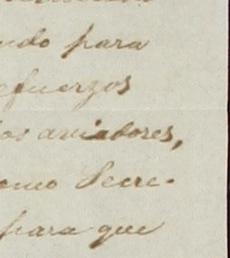 ndo para
efuerzos
os aviadores,
omo Secre-
para que